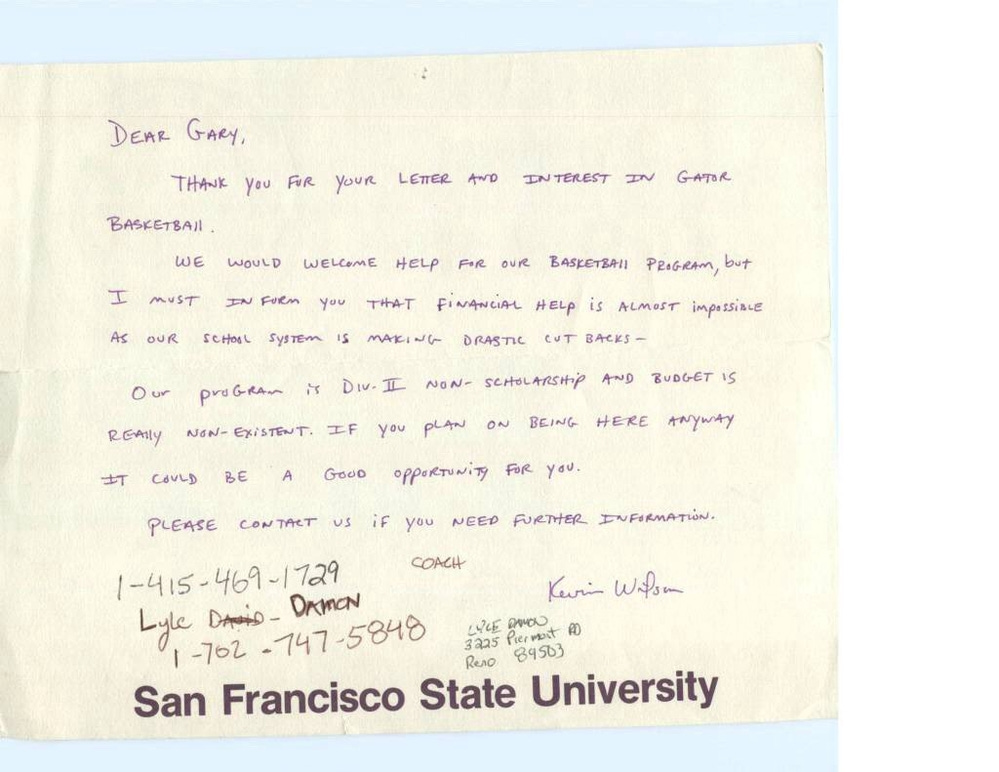 DEAR GARY,
THANK YOU FOR YOUR LETTER AND INTEREST IN GATOR
BASKETBALL.
WE WOULD WELCOME HELP FOR OUR BASKETBALL PROGRAM, but
I MUST INFORM YOU THAT FINANCIAL HELP IS ALMOST IMPOSSIBLE
AS OUR SCHOOL SYSTEM IS MAKING DRASTIC CUT BACKS-
OUR PROGRAM IS DIV. II NON-SCHOLARSHIP AND BUDGET IS
REALLY NON-EXISTENT. IF YOU PLAN ON BEING HERE ANYWAY
IT COULD BE A GOOD OPPORTUNITY FOR YOU.
PLEASE CONTACT US IF YOU NEED FURTHER INFORMATION.
COACH
Kevin Wilson
1-415-469-1729
Lyle David - DAMON
1-702-747-5848
LYLE DAMON
3225 Piermont RD
Reno 89503
San Francisco State University